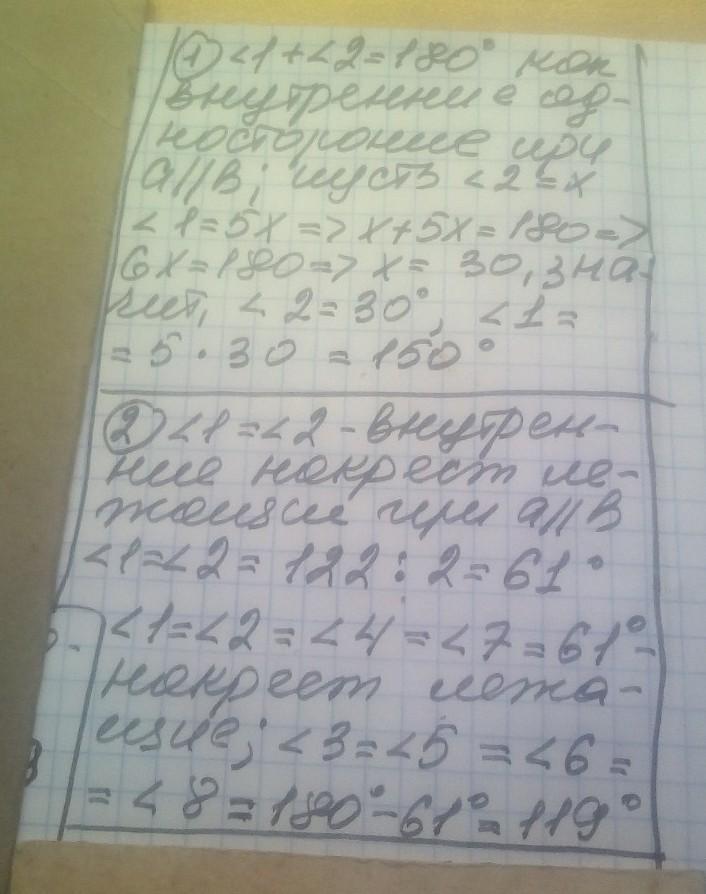 ① <1+<2=180° как
внутренние од-
носторонние при
a||в; пусть <2=x
<1=5x => x+5x=180=>
6x=180=> x= 30, зна-
чит, <2=30°, <1=
=5·30 =150°
② <1=<2-внутрен-
ние накрест ле-
жащие при a||в
<1=<2= 122:2=61°
<1=<2=<4=<7=61°-
накрест лежа-
щие; <3=<5 =<6=
=<8=180°-61°=119°